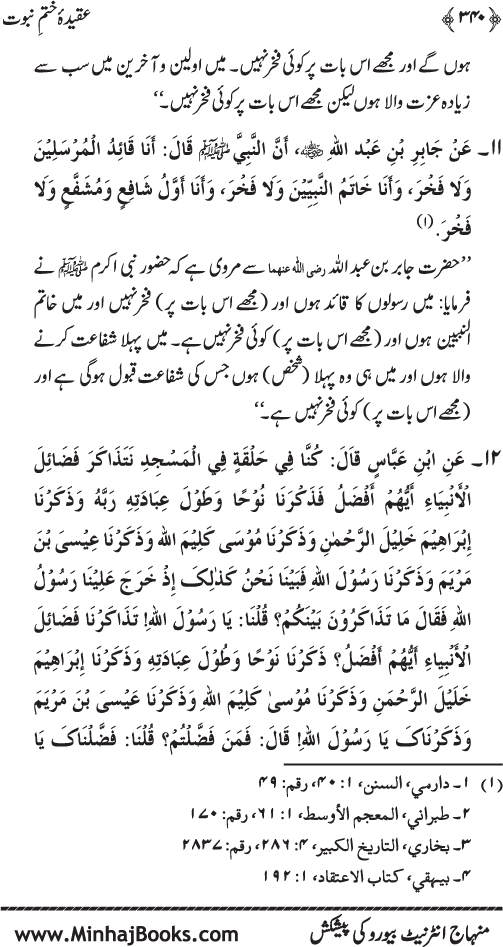 عقیدۂ ختمِ نبوت ﴿۳۴۰﴾
ہوں گے اور مجھے اس بات پر کوئی فخر نہیں۔ میں اولین و آخرین میں سب سے
زیادہ عزت والا ہوں لیکن مجھے اس بات پر کوئی فخر نہیں۔‘‘
۱۱۔ عَنْ جَابِرِ بْنِ عَبْدِ اللهِ رضی اللہ عنہ، أَنَّ النَّبِيَّ ﷺ قَالَ: أَنَا قَائِدُ الْمُرْسَلِيْنَ
وَلَا فَخْرَ، وَأَنَا خَاتَمُ النَّبِيِّيْنَ وَلَا فَخْرَ، وَأَنَا أَوَّلُ شَافِعٍ وَمُشَفَّعٍ وَلَا
فَخْرَ.(۱)
’’حضرت جابر بن عبد اللہ رضی اللہ عنہما سے مروی ہے کہ حضور نبی اکرم ﷺ نے
فرمایا: میں رسولوں کا قائد ہوں اور (مجھے اس بات پر) فخر نہیں اور میں خاتم
النبیین ہوں اور (مجھے اس بات پر) کوئی فخر نہیں ہے۔ میں پہلا شفاعت کرنے
والا ہوں اور میں ہی وہ پہلا (شخص) ہوں جس کی شفاعت قبول ہوگی ہے اور
(مجھے اس بات پر) کوئی فخر نہیں ہے۔‘‘
۱۲۔ عَنِ ابْنِ عَبَّاسٍ قَالَ: كُنَّا فِي حَلْقَةٍ فِي الْمَسْجِدِ نَتَذَاكَرُ فَضَائِلَ
الْأَنْبِيَاءِ أَيُّهُمْ أَفْضَلُ فَذَكَرْنَا نُوْحًا وَطُوْلَ عِبَادَتِهِ رَبَّهُ وَذَكَرْنَا
إِبْرَاهِيْمَ خَلِيْلَ الرَّحْمٰنِ وَذَكَرْنَا مُوْسَى كَلِيْمَ اللهِ وَذَكَرْنَا عِيْسَى بْنَ
مَرْيَمَ وَذَكَرْنَا رَسُوْلَ اللهِ فَبَيْنَا نَحْنُ كَذٰلِكَ إِذْ خَرَجَ عَلَيْنَا رَسُوْلُ
اللهِ فَقَالَ مَا تَذَاكَرُوْنَ بَيْنَكُمْ؟ قُلْنَا: يَا رَسُوْلَ اللهِ! تَذَاكَرْنَا فَضَائِلَ
الْأَنْبِيَاءِ أَيُّهُمْ أَفْضَلُ؟ ذَكَرْنَا نَوْحًا وَطُوْلَ عِبَادَتِهِ وَذَكَرْنَا إِبْرَاهِيْمَ
خَلِيْلَ الرَّحْمَنِ وَذَكَرْنَا مُوْسىٰ كَلِيْمَ اللهِ وَذَكَرْنَا عَيْسَى بْنَ مَرْيَمَ
وَذَكَرْنَاكَ يَا رَسُوْلَ اللهِ! قَالَ: فَمَنْ فَضَّلْتُمْ؟ قُلْنَا: فَضَّلْنَاكَ يَا
(۱) ۱۔ دارمي، السنن، ۱: ۴۰، رقم: ۴۹
۲۔ طبراني، المعجم الأوسط، ۱: ۶۱، رقم: ۱۷۰
۳۔ بخاري، التاريخ الكبير، ۴: ۲۸۶، رقم: ۲۸۳۷
۴۔ بيهقي، كتاب الاعتقاد، ۱: ۱۹۲
منہاج انٹرنیٹ بیورو کی پیشکش www.MinhajBooks.com